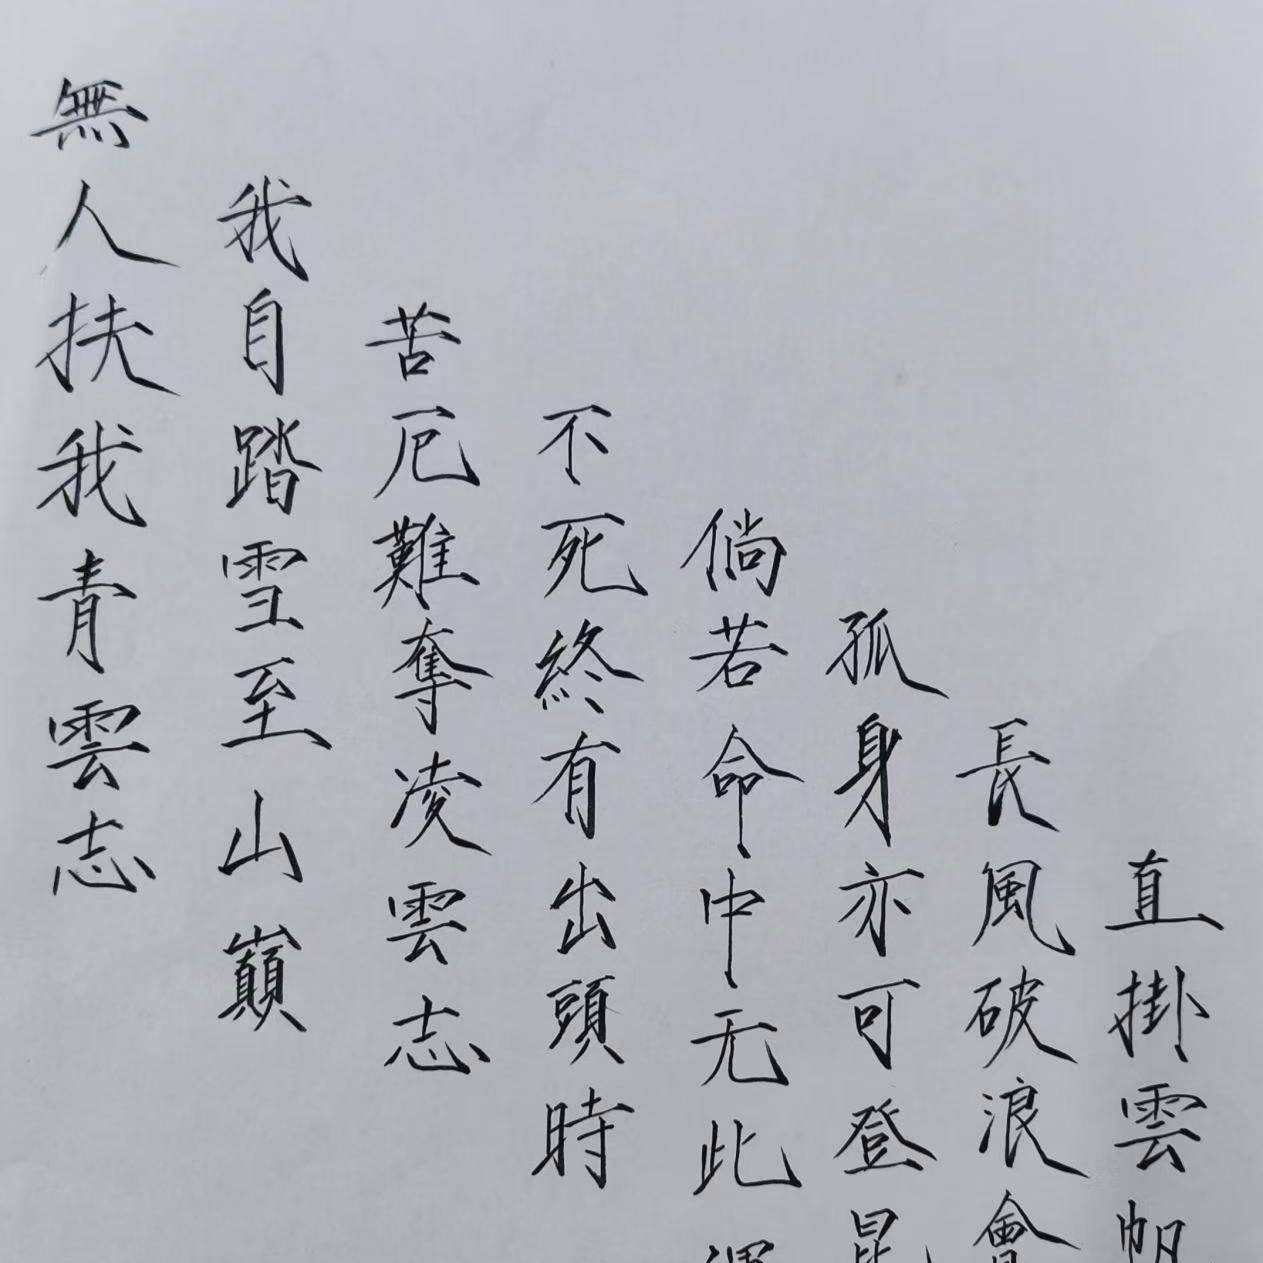 無人扶我青雲志
我自踏雪至山巔
苦厄難奪凌雲志
不死終有出頭時
倘若命中无此
孤身亦可登昆
長風破浪會
直掛雲帆